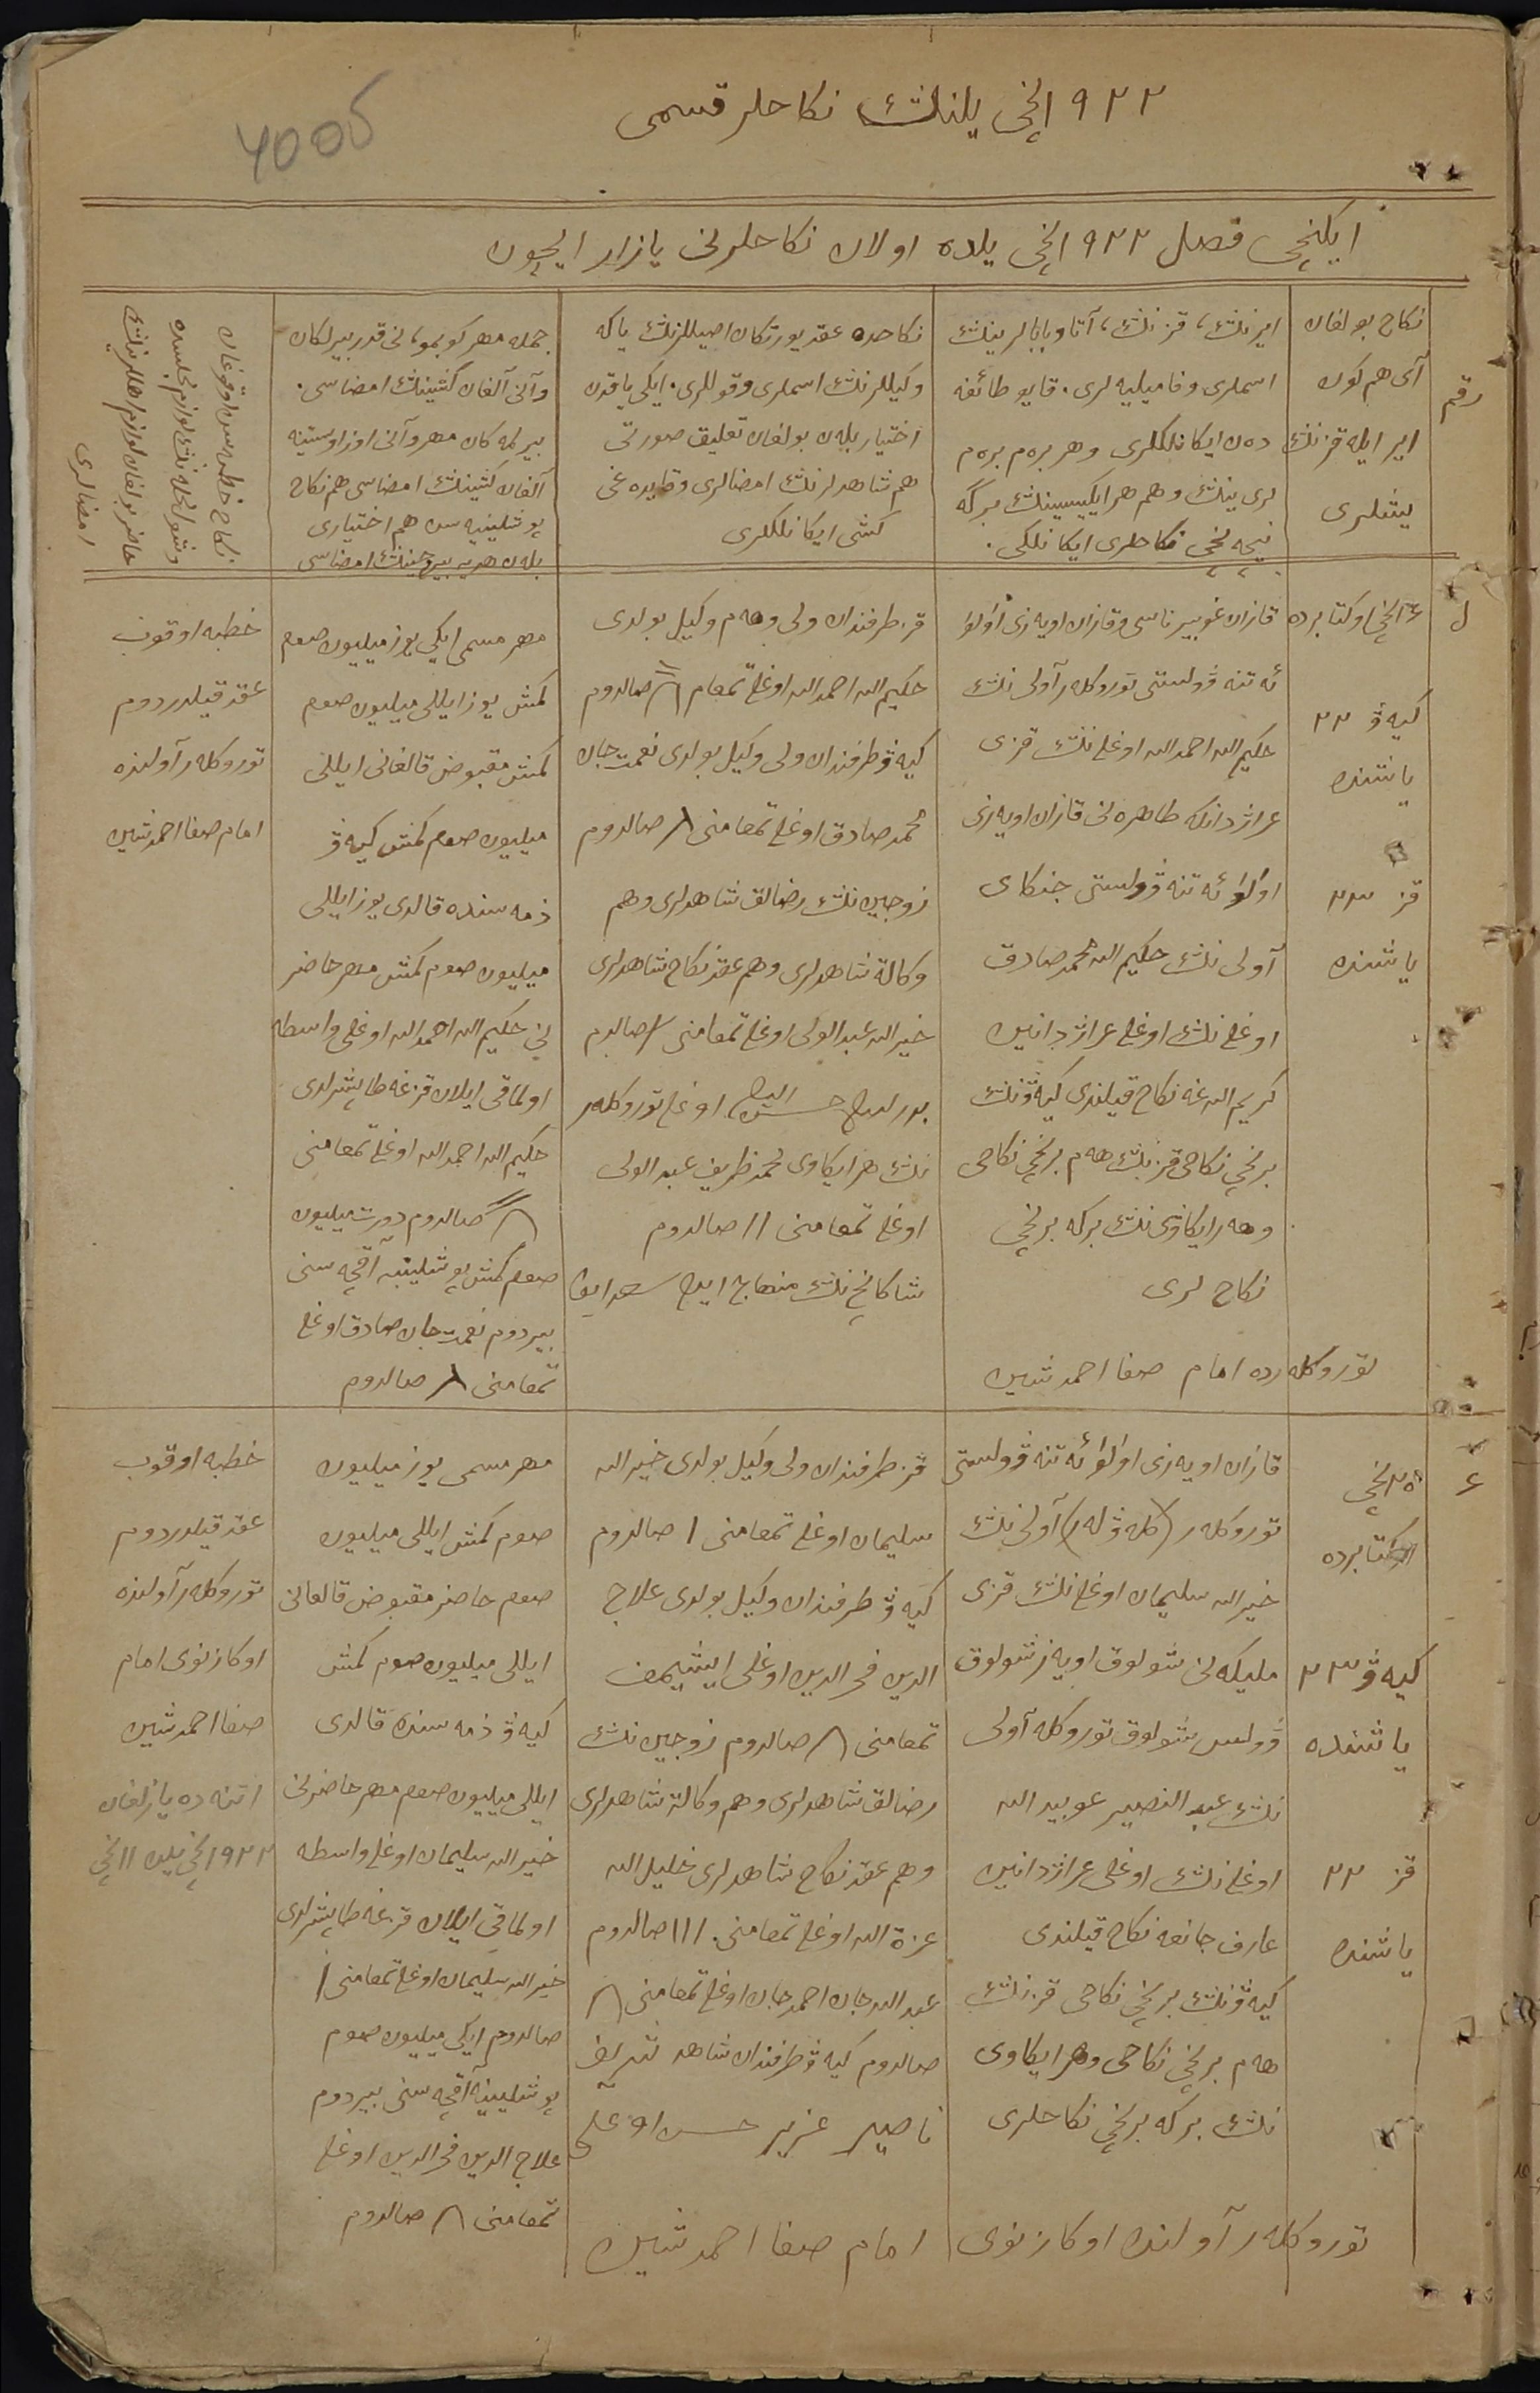 ۱۹۲۲ نچی یلننڭ نکاحلر قسمی
ایکنچی فصل ۱۹۲۲ نچی یلده اولان نکاحلرنی یازار ایچون
رقم
نکاح بولغان
آی هم کون
ایر ایله قزننڭ
یشلری
ایرننڭ، قزننڭ، آتا و بابالرینڭ
اسملری و فامیلیه لری. قایو طائفه
دەن ایکانلکلری وهر برەم برەم
لرینڭ وهم هر ایکیسینڭ برگه
نیچه نچی نکاحلری ایکانلکی.
نکاحده عقد یورتکان اصیللرنڭ یاکه
وکیللرنڭ اسملری وقوللری. ایکی یاقدن
اختیار بیلەن بولغان تعلیق صورتی
هم شاهدلرنڭ امضالری وقایده غی
کشی ایکانلکلری
جمله مهر کوبمو، نی قدر بیرلکان
وآنی آلغان کشینڭ امضاسی.
بیرلمه کان مهر وآنی اوز اوستینه
آلغان کشینڭ امضاسی هم نکاح
پوشلینیه سن هم اختیاری
بلەن هدیه بیرچینڭ امضاسی
نکاح خطبه سن اوقوغان
حاضر بولغان لوازم اهللرینڭ
امضالری
۱
اوکتابرده
کیەۋ ۲۲
یاشنده
قز ۲۳
یاشنده
قازان غوبیرناسی وقازان اویەزی اولۇ
ئەتنە ۋولستی توروکلەر آولی ننڭ
حکیم الله احمدالله اوغلی ننڭ قزی
عراژدانکه طاهره نی قازان اویەزی
اولۇ ئەتنە ۋولستی جنکای
آولی ننڭ حکیم الله محمدصادق
اوغلی ننڭ اوغلی عراژدانین
کریم الله غه نکاح قیلندی کیەۋننڭ
برنچی نکاحی قزننڭ هەم برنچی نکاحی
وهەر ایکاوی ننڭ برکه برنچی
نکاح لری
قز طرفندان ولی وهەم وکیل بولدی
حکیم الله احمدالله اوغلی تمغام صالدوم
کیەۋ طرفندان ولی وکیل بولدی نعمت جان
محمدصادق اوغلی تمغامنی صالدوم
زوجین ننڭ رضالق شاهدلری وهم
وکالة شاهدلری وهم عقد نکاح شاهدلری
خیرالله عبدالولی اوغلی تمغامنی صالدم
اوغلی توروکلەر
ننڭ هر ایکاوی محمدظریف عبدالولی
اوغلی تمغامنی ۱۱ صالدوم
مهر مسمی ایکی یوز میلیون صوم
کمش یوز ایللی میلیون صوم
کمش مقبوض قالغانی ایللی
میلیون صوم کمش کیەۋ
ذمه سنده قالدی یوز ایللی
میلیون صوم کمش مهر حاضر
نی حکیم الله احمدالله اوغلی واسطه
اولماقی ایلان قزغه طاپشرلدی
حکیم الله احمدالله اوغلی تمغامنی
صالدوم دورت میلیون
صوم کمش پوشلینیه آقچه سنی
بیردوم نعمت جان صادق اوغلی
تمغامنی صالدوم
خطبه اوقوب
عقد قیلدردوم
توروکلەر آولنده
امام صفا احمدشین
توروکلەرده امام صفا احمدشین
۲
۲۵ نچی
اوکتابرده
کیەۋ ۲۳
یاشنده
قز ۲۲
یاشنده
قازان اویەزی اولۇ ئەتنە ۋولستی
توروکلەر (کلەۋلەر) آولی ننڭ
خیرالله سلیمان اوغلی ننڭ قزی
ملیکه نی شولوق اویەز شولوق
ۋولس شولوق توروکلە آولی
ننڭ عبدالنصیر عوبیدالله
اوغلی ننڭ اوغلی عراژدانین
عارف جانغه نکاح قیلندی
کیەۋننڭ برنچی نکاحی قزننڭ
هەم برنچی نکاحی وهر ایکاوی
ننڭ برکه برنچی نکاحلری
قز طرفندان ولی وکیل بولدی خیرالله
سلیمان اوغلی تمغامنی ۱ صالدوم
کیەۋ طرفندان وکیل بولدی علاج
الدین فخرالدین اوغلی
تمغامنی صالدوم زوجین ننڭ
رضالق شاهدلری وهم وکالة شاهدلری
وهم عقد نکاح شاهدلری خلیل الله
عزة الله اوغلی تمغامنی ۱۱۱ صالدوم
عبدالله جان احمدجان اوغلی تمغامنی
صالدوم کیەۋ طرفندان شاهد شریف
ناصیر عزیر حسن اوغلی
مهر مسمی یوز میلیون
صوم کمش ایللی میلیون
صوم حاضر مقبوض قالغانی
ایللی میلیون صوم کمش
کیەۋ ذمه سنده قالدی
ایللی میلیون صوم مهر حاضرنی
خیرالله سلیمان اوغلی واسطه
اولماقی ایلان قزغه طاپشرلدی
خیرالله سلیمان اوغلی تمغامنی ۱
صالدوم ایکی میلیون صوم
پوشلینیه آقچه سنی بیردوم
علاج الدین فخرالدین اوغلی
تمغامنی صالدوم
خطبه اوقوب
عقد قیلدردوم
توروکلەر آولنده
اوکازنوی امام
صفا احمدشین
ده یازلغان
۱۹۲۲ نچی یلن ۱۱ نچی
توروکلەر آولنده اوکازنوی امام صفا احمدشین